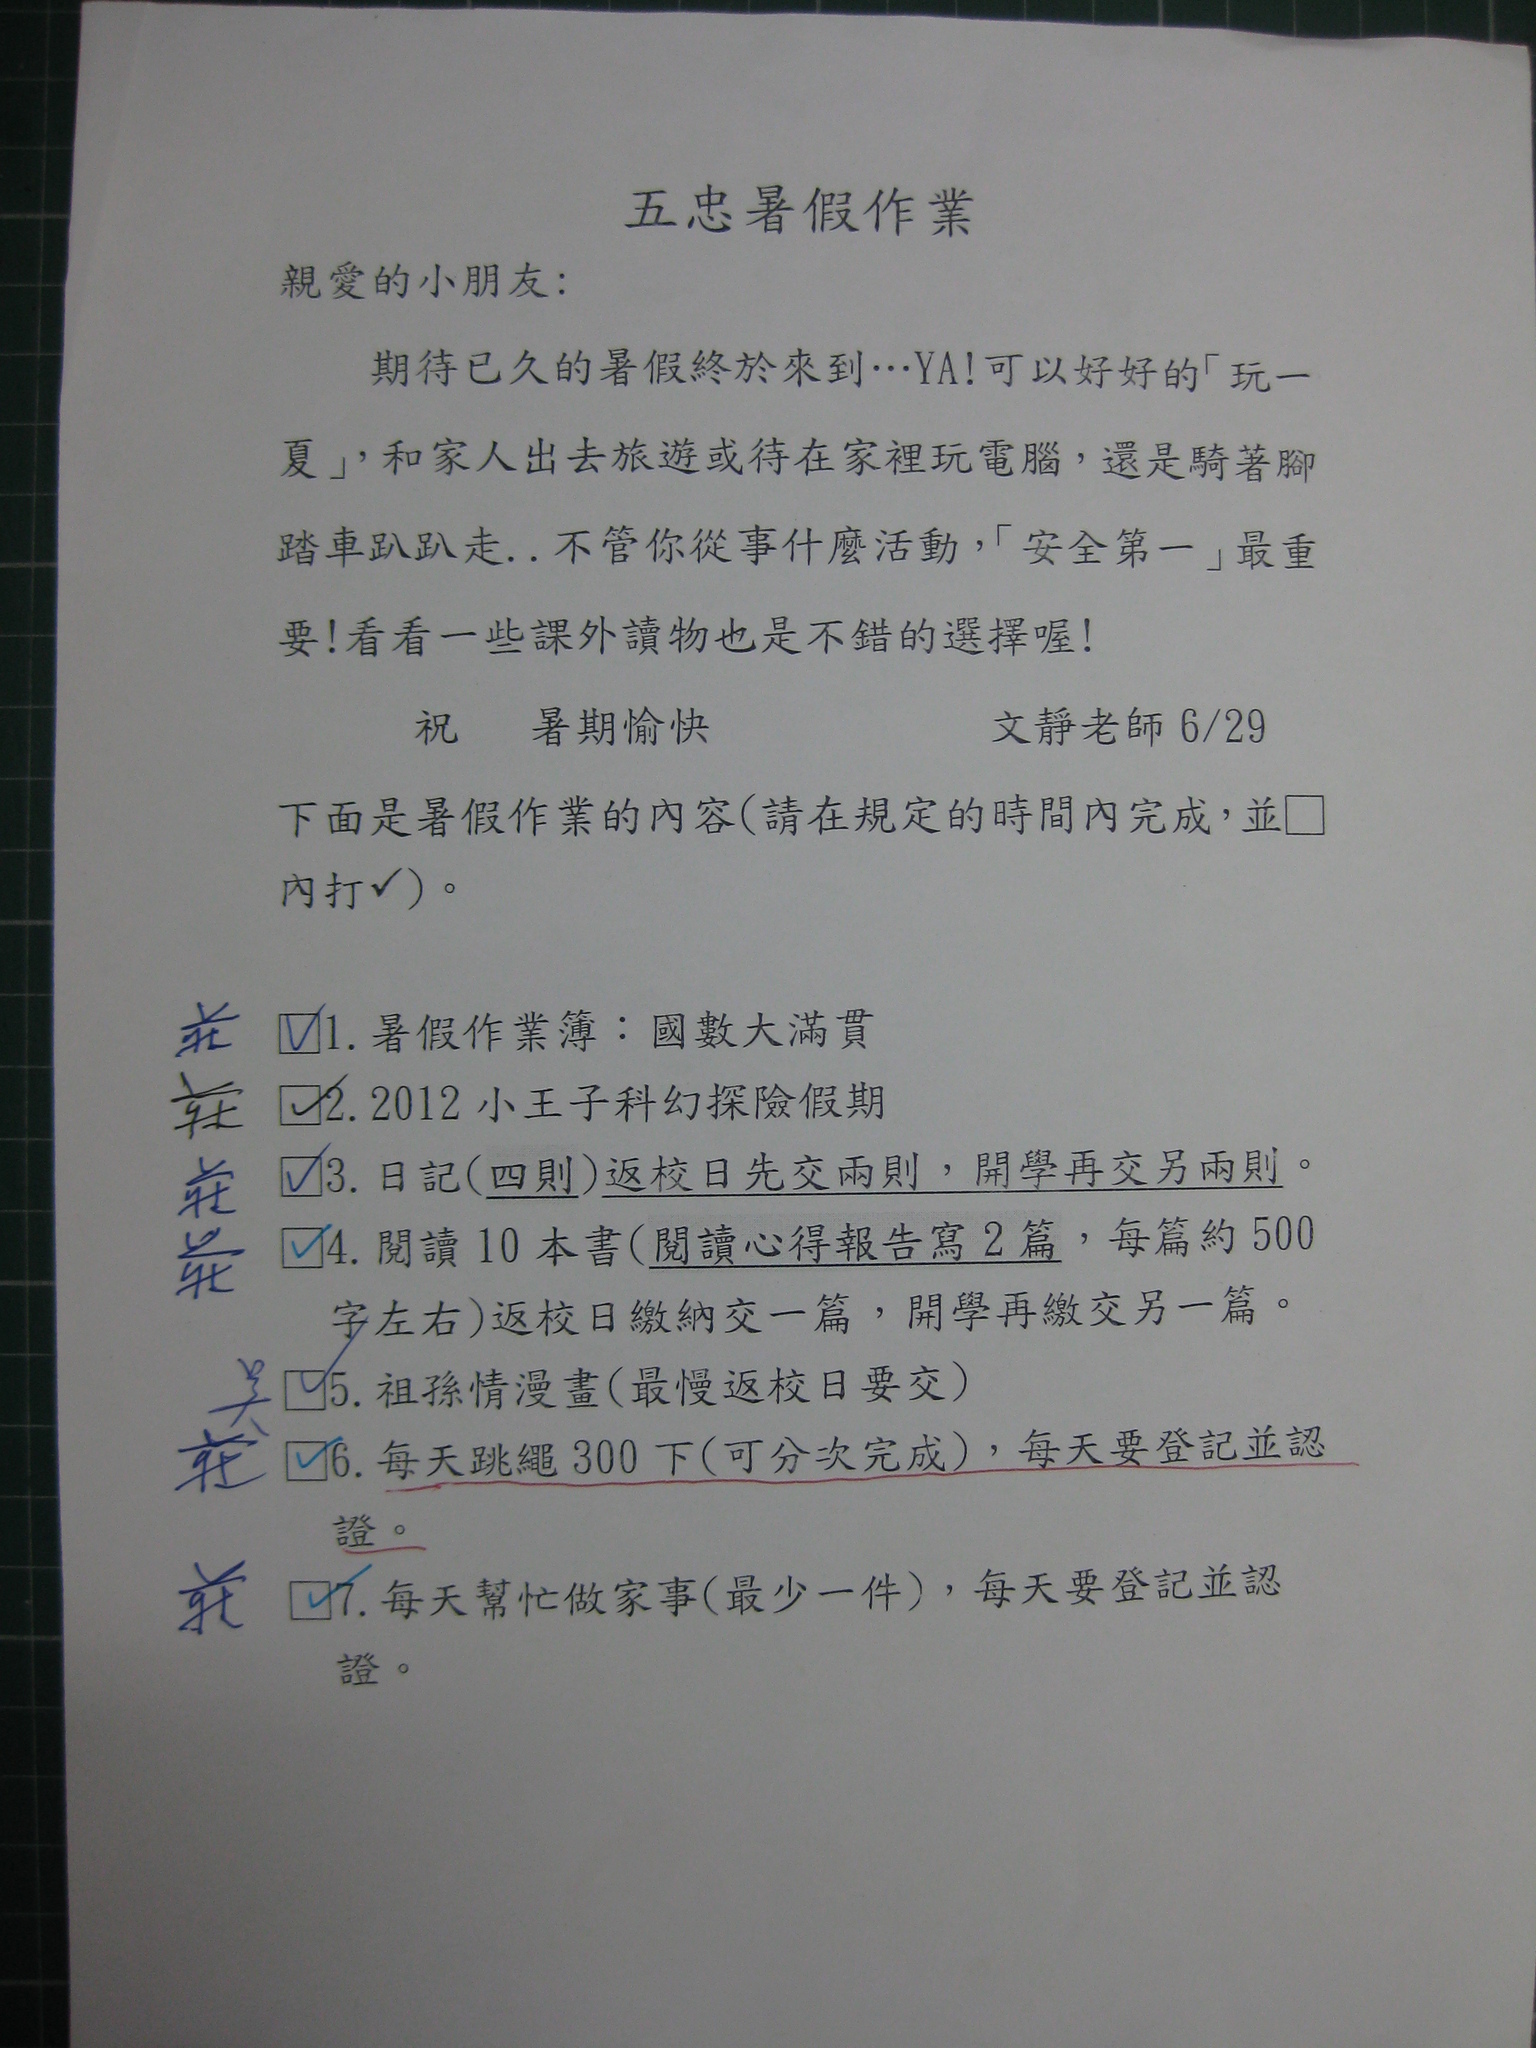 五忠暑假作業
親愛的小朋友:
期待已久的暑假終於來到…YA!可以好好的「玩一
夏」,和家人出去旅遊或待在家裡玩電腦,還是騎著腳
踏車趴趴走..不管你從事什麼活動,「安全第一」最重
要!看看一些課外讀物也是不錯的選擇喔!
祝 暑期愉快 文靜老師 6/29
下面是暑假作業的內容(請在規定的時間內完成,並□
內打✓)。
莊 ☑1.暑假作業簿：國數大滿貫
莊 ☑2.2012 小王子科幻探險假期
莊 ☑3.日記(四則)返校日先交兩則，開學再交另兩則。
莊 ☑4.閱讀 10 本書(閱讀心得報告寫 2 篇，每篇約 500
字左右)返校日繳納交一篇，開學再繳交另一篇。
吳 ☑5.祖孫情漫畫(最慢返校日要交)
莊 ☑6.每天跳繩 300 下(可分次完成)，每天要登記並認
證。
莊 ☑7.每天幫忙做家事(最少一件)，每天要登記並認
證。